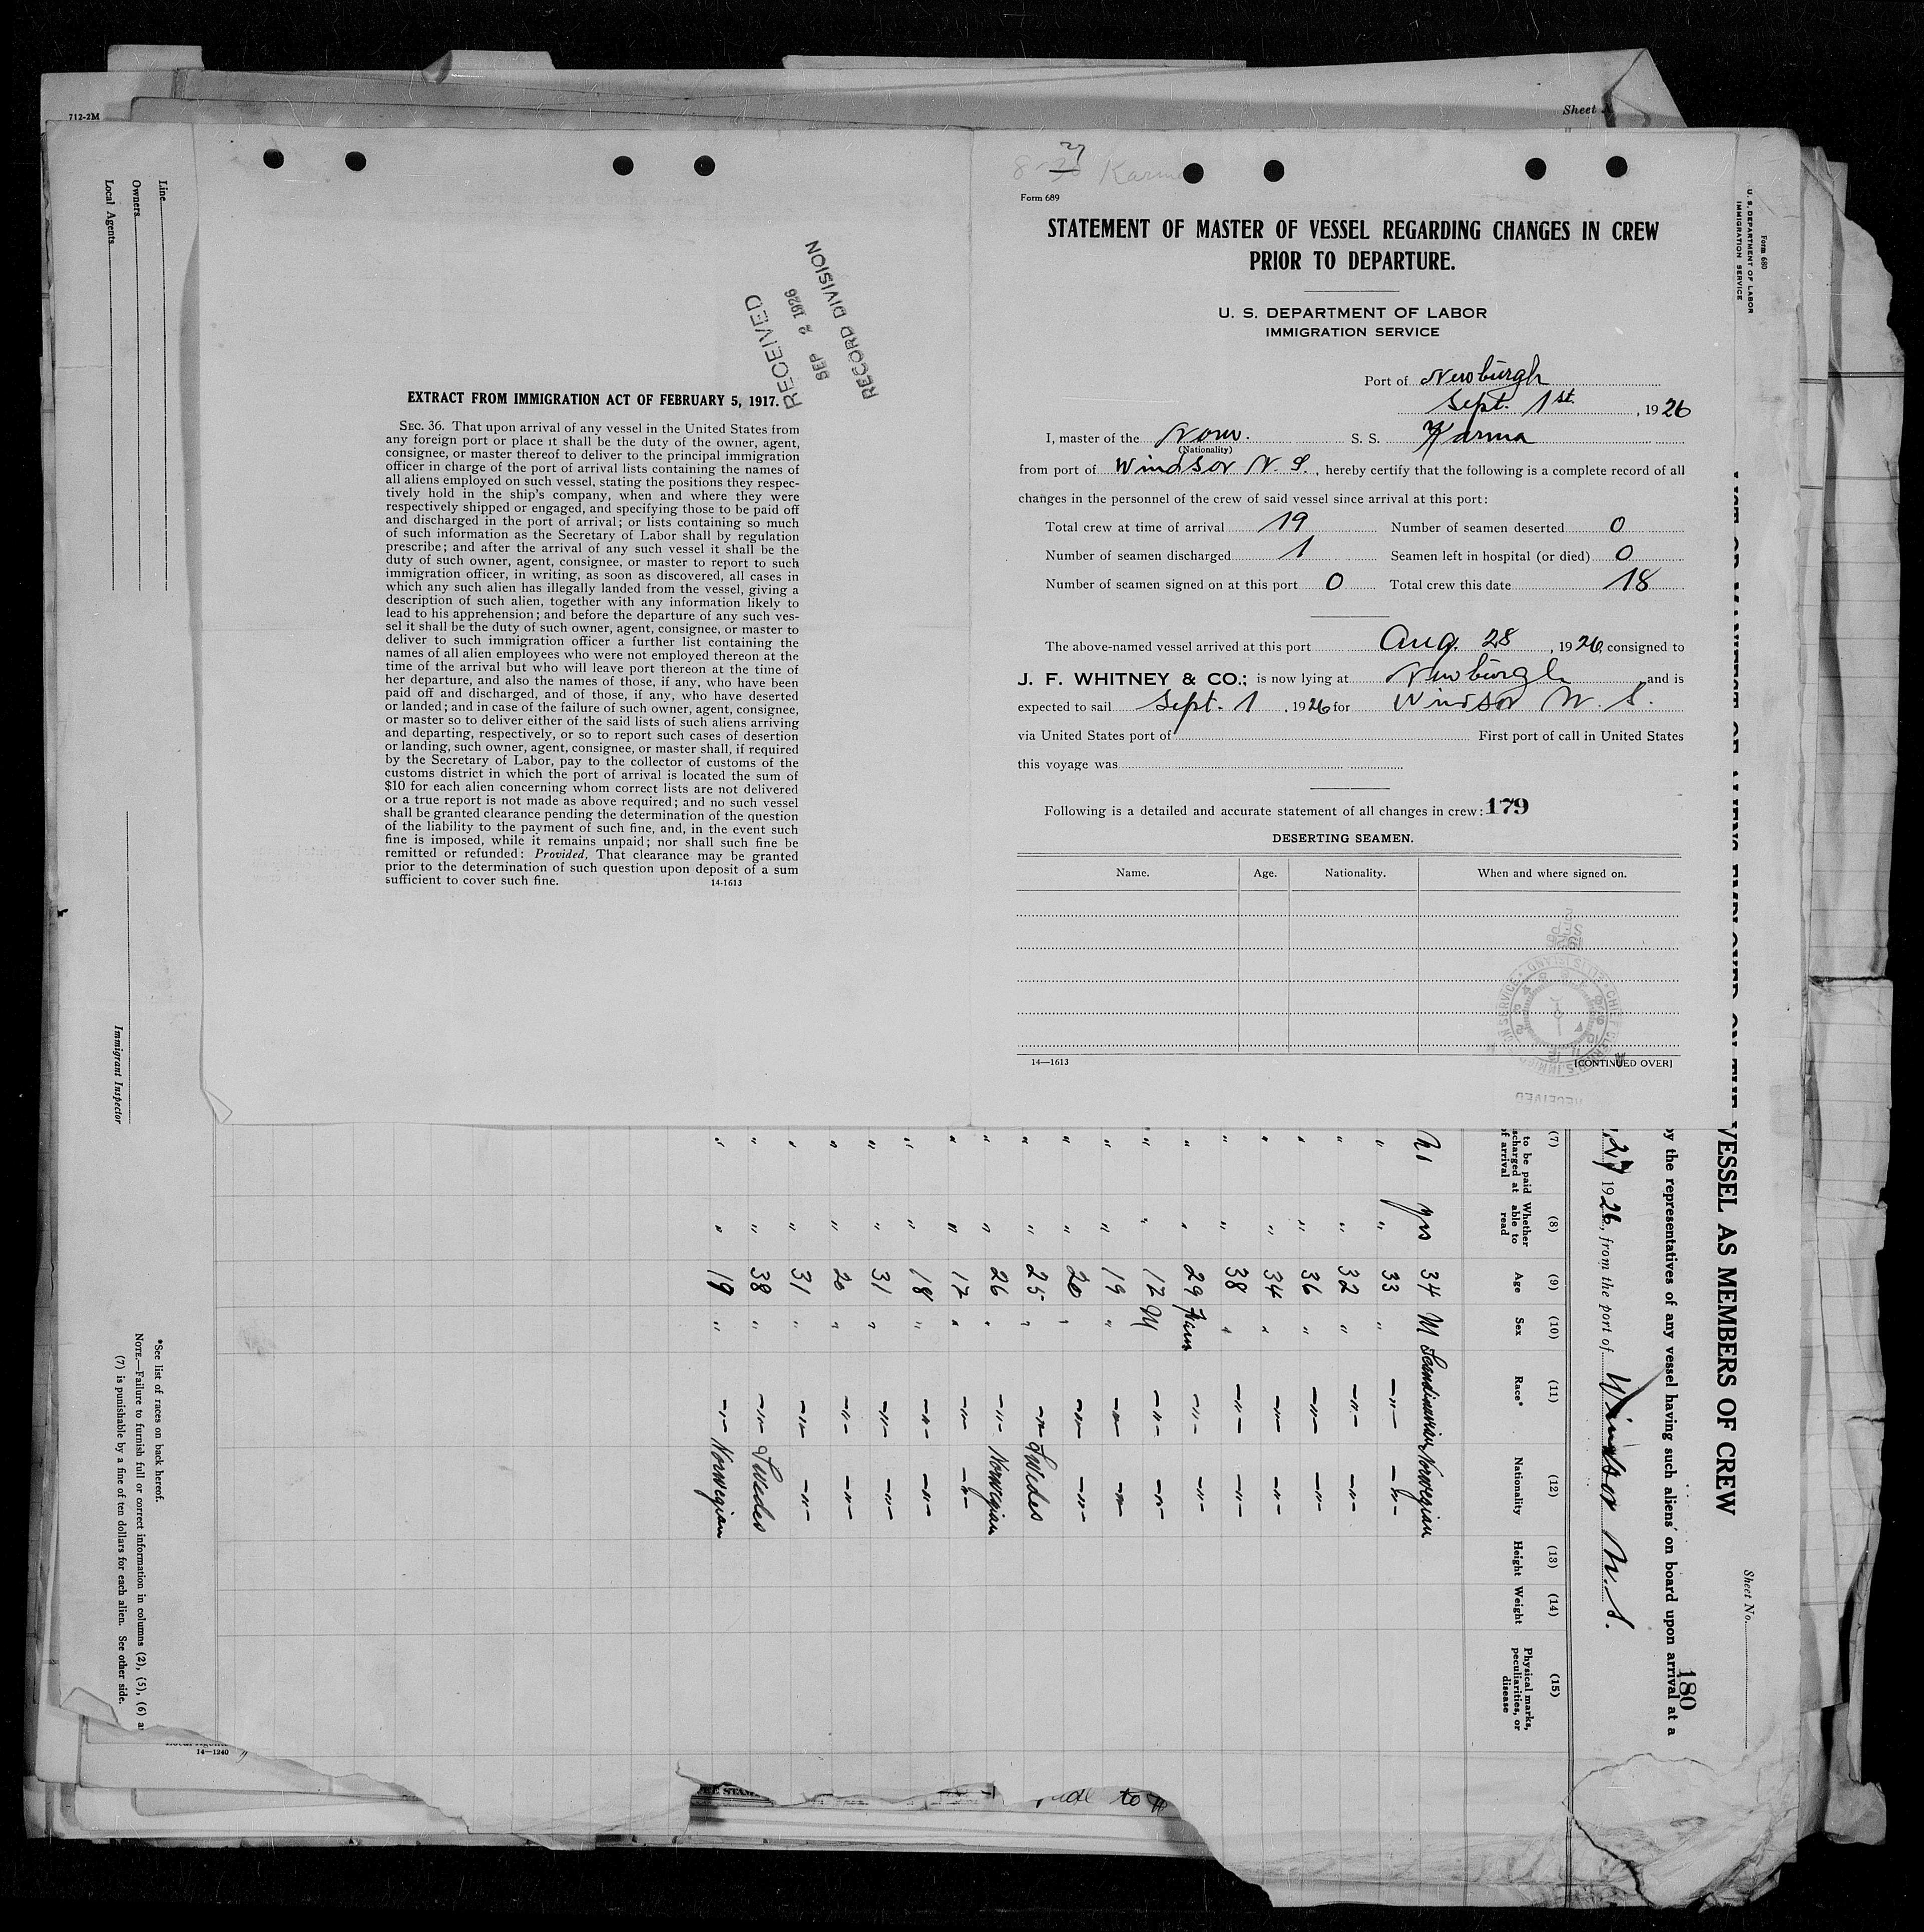 712-2M
Sheet
Line
Owners
Local Agents
Immigrant Inspector
*See list of races on back hereof.
NOTE.—Failure to furnish full or correct information in columns (2), (5), (6)
(7) is punishable by a fine of ten dollars for each alien. See other side.
14—1240
RECEIVED
SEP 2 1926
RECORD DIVISION
EXTRACT FROM IMMIGRATION ACT OF FEBRUARY 5, 1917.
SEC. 36. That upon arrival of any vessel in the United States from
any foreign port or place it shall be the duty of the owner, agent,
consignee, or master thereof to deliver to the principal immigration
officer in charge of the port of arrival lists containing the names of
all aliens employed on such vessel, stating the positions they respec-
tively hold in the ship's company, when and where they were
respectively shipped or engaged, and specifying those to be paid off
and discharged in the port of arrival; or lists containing so much
of such information as the Secretary of Labor shall by regulation
prescribe; and after the arrival of any such vessel it shall be the
duty of such owner, agent, consignee, or master to report to such
immigration officer, in writing, as soon as discovered, all cases in
which any such alien has illegally landed from the vessel, giving a
description of such alien, together with any information likely to
lead to his apprehension; and before the departure of any such ves-
sel it shall be the duty of such owner, agent, consignee, or master to
deliver to such immigration officer a further list containing the
names of all alien employees who were not employed thereon at the
time of the arrival but who will leave port thereon at the time of
her departure, and also the names of those, if any, who have been
paid off and discharged, and of those, if any, who have deserted
or landed; and in case of the failure of such owner, agent, consignee,
or master so to deliver either of the said lists of such aliens arriving
and departing, respectively, or so to report such cases of desertion
or landing, such owner, agent, consignee, or master shall, if required
by the Secretary of Labor, pay to the collector of customs of the
customs district in which the port of arrival is located the sum of
$10 for each alien concerning whom correct lists are not delivered
or a true report is not made as above required; and no such vessel
shall be granted clearance pending the determination of the question
of the liability to the payment of such fine, and, in the event such
fine is imposed, while it remains unpaid; nor shall such fine be
remitted or refunded: Provided, That clearance may be granted
prior to the determination of such question upon deposit of a sum
sufficient to cover such fine. 14-1613
27
8-30 Karma
Form 689
STATEMENT OF MASTER OF VESSEL REGARDING CHANGES IN CREW
PRIOR TO DEPARTURE.
U. S. DEPARTMENT OF LABOR
IMMIGRATION SERVICE
Port of Newburgh
Sept. 1st. , 1926
I, master of the Norw. S. S. Karma
(Nationality)
from port of Windsor N. S. , hereby certify that the following is a complete record of all
changes in the personnel of the crew of said vessel since arrival at this port:
Total crew at time of arrival 19 Number of seamen deserted 0
Number of seamen discharged 1 Seamen left in hospital (or died) 0
Number of seamen signed on at this port 0 Total crew this date 18
The above-named vessel arrived at this port Aug. 28 , 1926, consigned to
J. F. WHITNEY & CO.; is now lying at Newburgh and is
expected to sail Sept. 1 , 1926 for Windsor N. S.
via United States port of First port of call in United States
this voyage was
Following is a detailed and accurate statement of all changes in crew: 179
DESERTING SEAMEN.
Name. Age. Nationality. When and where signed on.
14—1613 [CONTINUED OVER]
RECEIVED
Form 680
U. S. DEPARTMENT OF LABOR
IMMIGRATION SERVICE
Sheet No.
VESSEL AS MEMBERS OF CREW
180
by the representatives of any vessel having such aliens on board upon arrival at a
, 27 1926, from the port of Windsor N. S.
(7) (8) (9) (10) (11) (12) (13) (14) (15)
to be paid
discharged at
of arrival
Whether
able to
read
Age Sex Race* Nationality Height Weight
Physical marks,
peculiarities, or
disease
No yes 34 M Scandinavian Norwegian
" " 33 " -"- -"-
" " 32 " -"- -"-
" " 36 " -"- -"-
" " 34 " -"- -"-
" " 38 " -"- -"-
" " 29 Fem -"- -"-
" " 17 M -"- -"-
" " 19 " -"- -"-
" " 20 " -"- -"-
" " 25 " -"- Swedes
" " 26 " -"- Norwegian
" " 17 " -"- -"-
" " 18 " -"- -"-
" " 31 " -"- -"-
" " 20 " -"- -"-
" " 31 " -"- -"-
" " 38 " -"- Swedes
" " 19 " -"- Norwegian